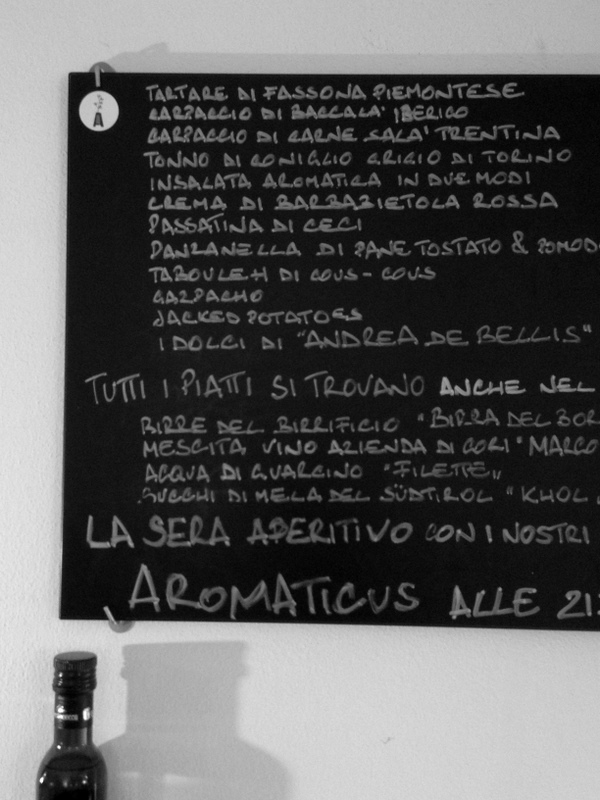 TARTARE DI FASSONA PIEMONTESE
CARPACCIO DI BACCALA' IBERICO
CARPACCIO DI CARNE SALA' TRENTINA
TONNO DI CONIGLIO GRIGIO DI TORINO
INSALATA AROMATICA IN DUE MODI
CREMA DI BARBABIETOLA ROSSA
PASSATINA DI CECI
PANZANELLA DI PANE TOSTATO & POMOD
TABOULEH DI COUS-COUS
GAZPACHO
JACKED POTATOES
I DOLCI DI "ANDREA DE BELLIS"
TUTTI I PIATTI SI TROVANO ANCHE NEL
BIRRE DEL BIRRIFICIO "BIRRA DEL BOR
MESCITA VINO AZIENDA DI CORI "MARCO
ACQUA DI GUARCINO "FILETTE"
SUCCHI DI MELA DEL SÜDTIROL "KHOL
LA SERA APERITIVO CON I NOSTRI
AROMATICUS ALLE 21: